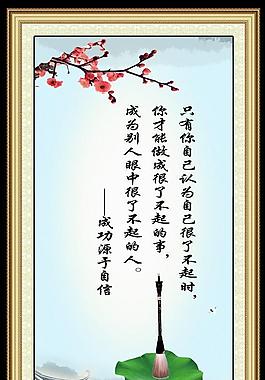 只有你自己认为自己很了不起时，
你才能做成很了不起的事，
成为别人眼中很了不起的人。
——成功源于自信